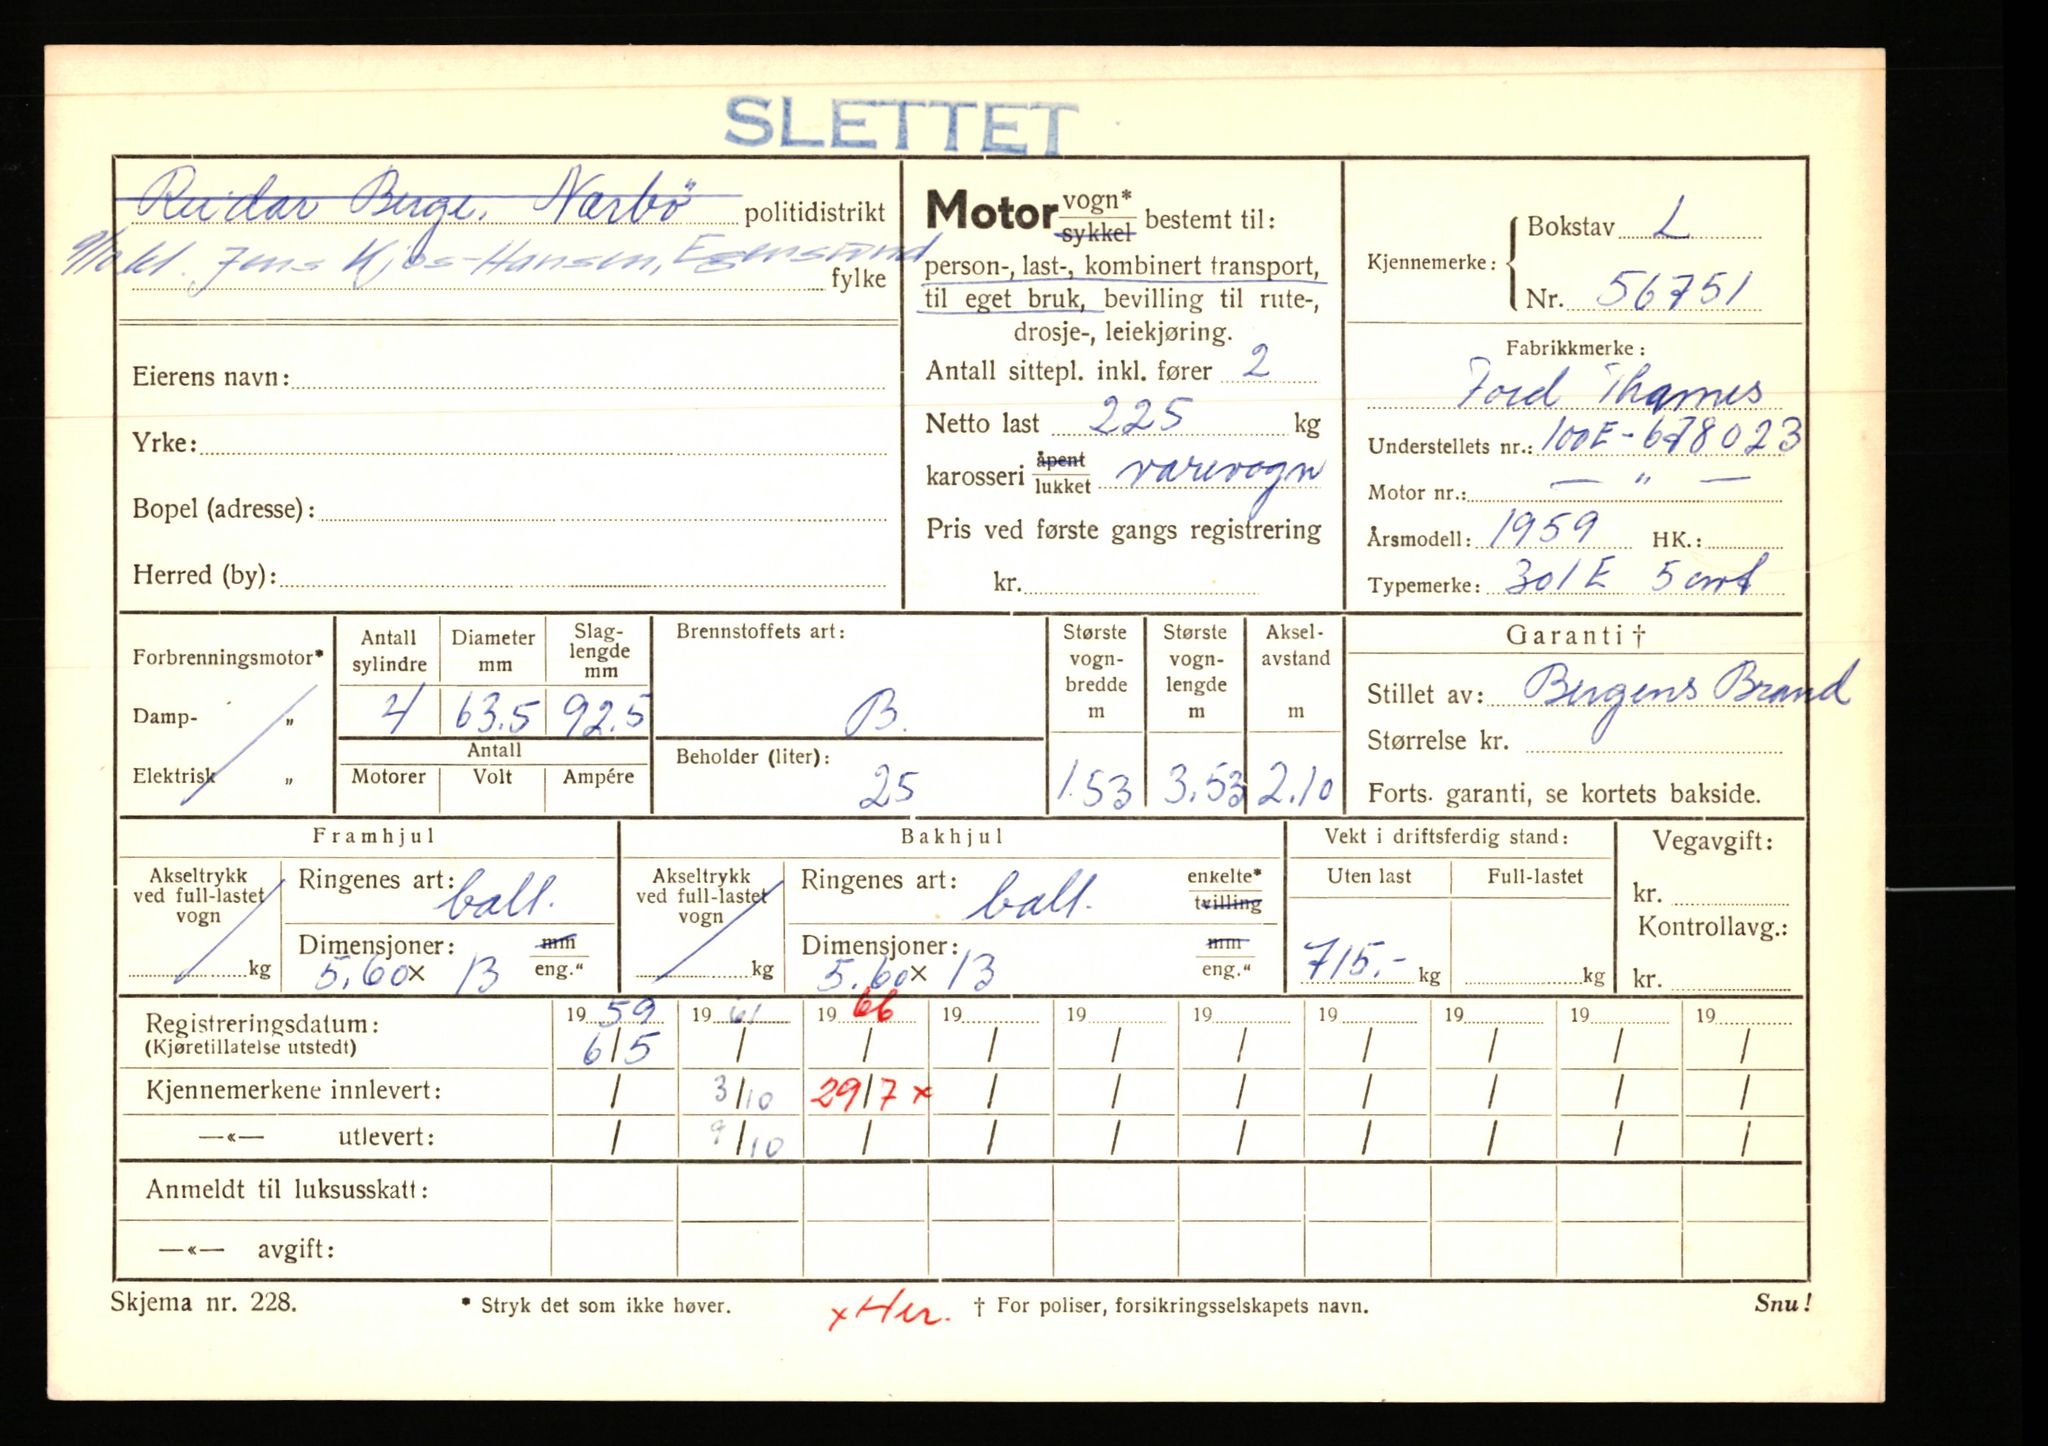 SLETTET
Reidar Berge, Nærbö politidistrikt
Jens Kjøs-Hansen, Egersund fylke
Eierens navn:
Yrke:
Bopel (adresse):
Herred (by):
Motor vogn* sykkel bestemt til:
person-, last-, kombinert transport,
til eget bruk, bevilling til rute-,
drosje-, leiekjøring.
Antall sittepl. inkl. fører 2
Netto last 225 kg
karosseri åpent lukket varevogn
Pris ved første gangs registrering
kr.
Kjennemerke: Bokstav L
Nr. 56751
Fabrikkmerke:
Ford Thames
Understellets nr.: 100E-678023
Motor nr.: — " —
Årsmodell: 1959 HK.:
Typemerke: 301E 5 cwt
Forbrenningsmotor*
Damp- „
Elektrisk „
Antall sylindre 4
Diameter mm 63.5
Slaglengde mm 92.5
Antall
Motorer Volt Ampére
Brennstoffets art:
B.
Beholder (liter):
25
Største vogn-bredde m 1.53
Største vogn-lengde m 3.53
Aksel-avstand m 2.10
Garanti †
Stillet av: Bergens Brand
Størrelse kr.
Forts. garanti, se kortets bakside.
Framhjul
Akseltrykk ved full-lastet vogn kg
Ringenes art: ball.
Dimensjoner: mm eng."
5.60 x 13
Bakhjul
Akseltrykk ved full-lastet vogn kg
Ringenes art: ball. enkelte* tvilling
Dimensjoner: mm eng."
5.60 x 13
Vekt i driftsferdig stand:
Uten last Full-lastet
715.- kg kg
Vegavgift:
kr.
Kontrollavg.:
kr.
Registreringsdatum: 19 59 19 61 19 66 19 19 19 19 19 19 19
(Kjøretillatelse utstedt) 6/5 / / / / / / / / /
Kjennemerkene innlevert: / 3/10 29/7 x / / / / / / /
—«— utlevert: / 9/10 / / / / / / / /
Anmeldt til luksusskatt:
—«— avgift:
Skjema nr. 228. * Stryk det som ikke høver. x Her. † For poliser, forsikringsselskapets navn. Snu!